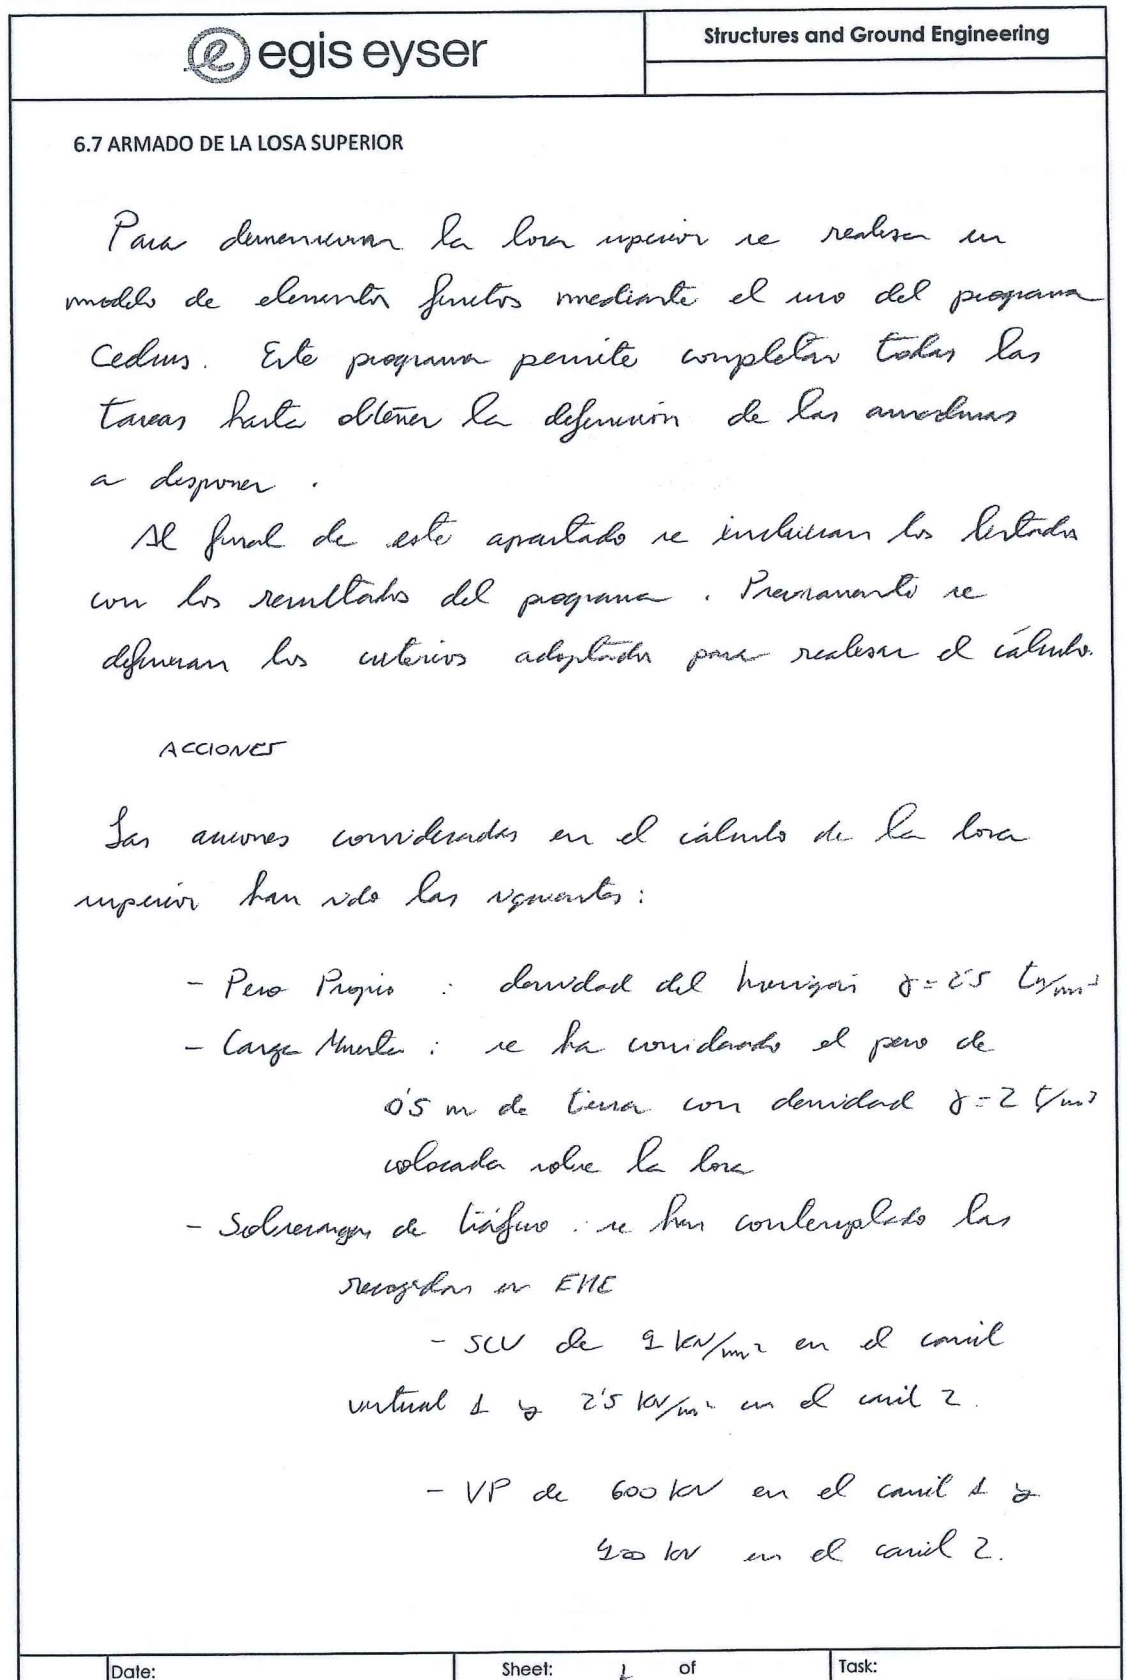 egis eyser
Structures and Ground Engineering
6.7 ARMADO DE LA LOSA SUPERIOR
Para dimensionar la losa superior se realiza un
modelo de elementos finitos mediante el uso del programa
Cedrus. Este programa permite completar todas las
tareas hasta obtener la definición de las armaduras
a disponer.
Al final de este apartado se incluiran los listados
con los resultados del programa. Previamente se
definiran los criterios adoptados para realizar el cálculo.
ACCIONES
Las acciones consideradas en el cálculo de la losa
superior han sido las siguientes:
- Peso Propio : densidad del hormigón γ = 2'5 tn/m³
- Carga Muerta : se ha considerado el peso de
0'5 m de tierra con densidad γ = 2 t/m³
colocada sobre la losa
- Sobrecargas de tráfico : se han contemplado las
recogidas en
- SCU de 9 kN/m² en el carril
virtual 1 y 2'5 kN/m² en el carril 2.
- VP de 600 kN en el carril 1 y
400 kN en el carril 2.
Date:
Sheet: 1 of
Task: